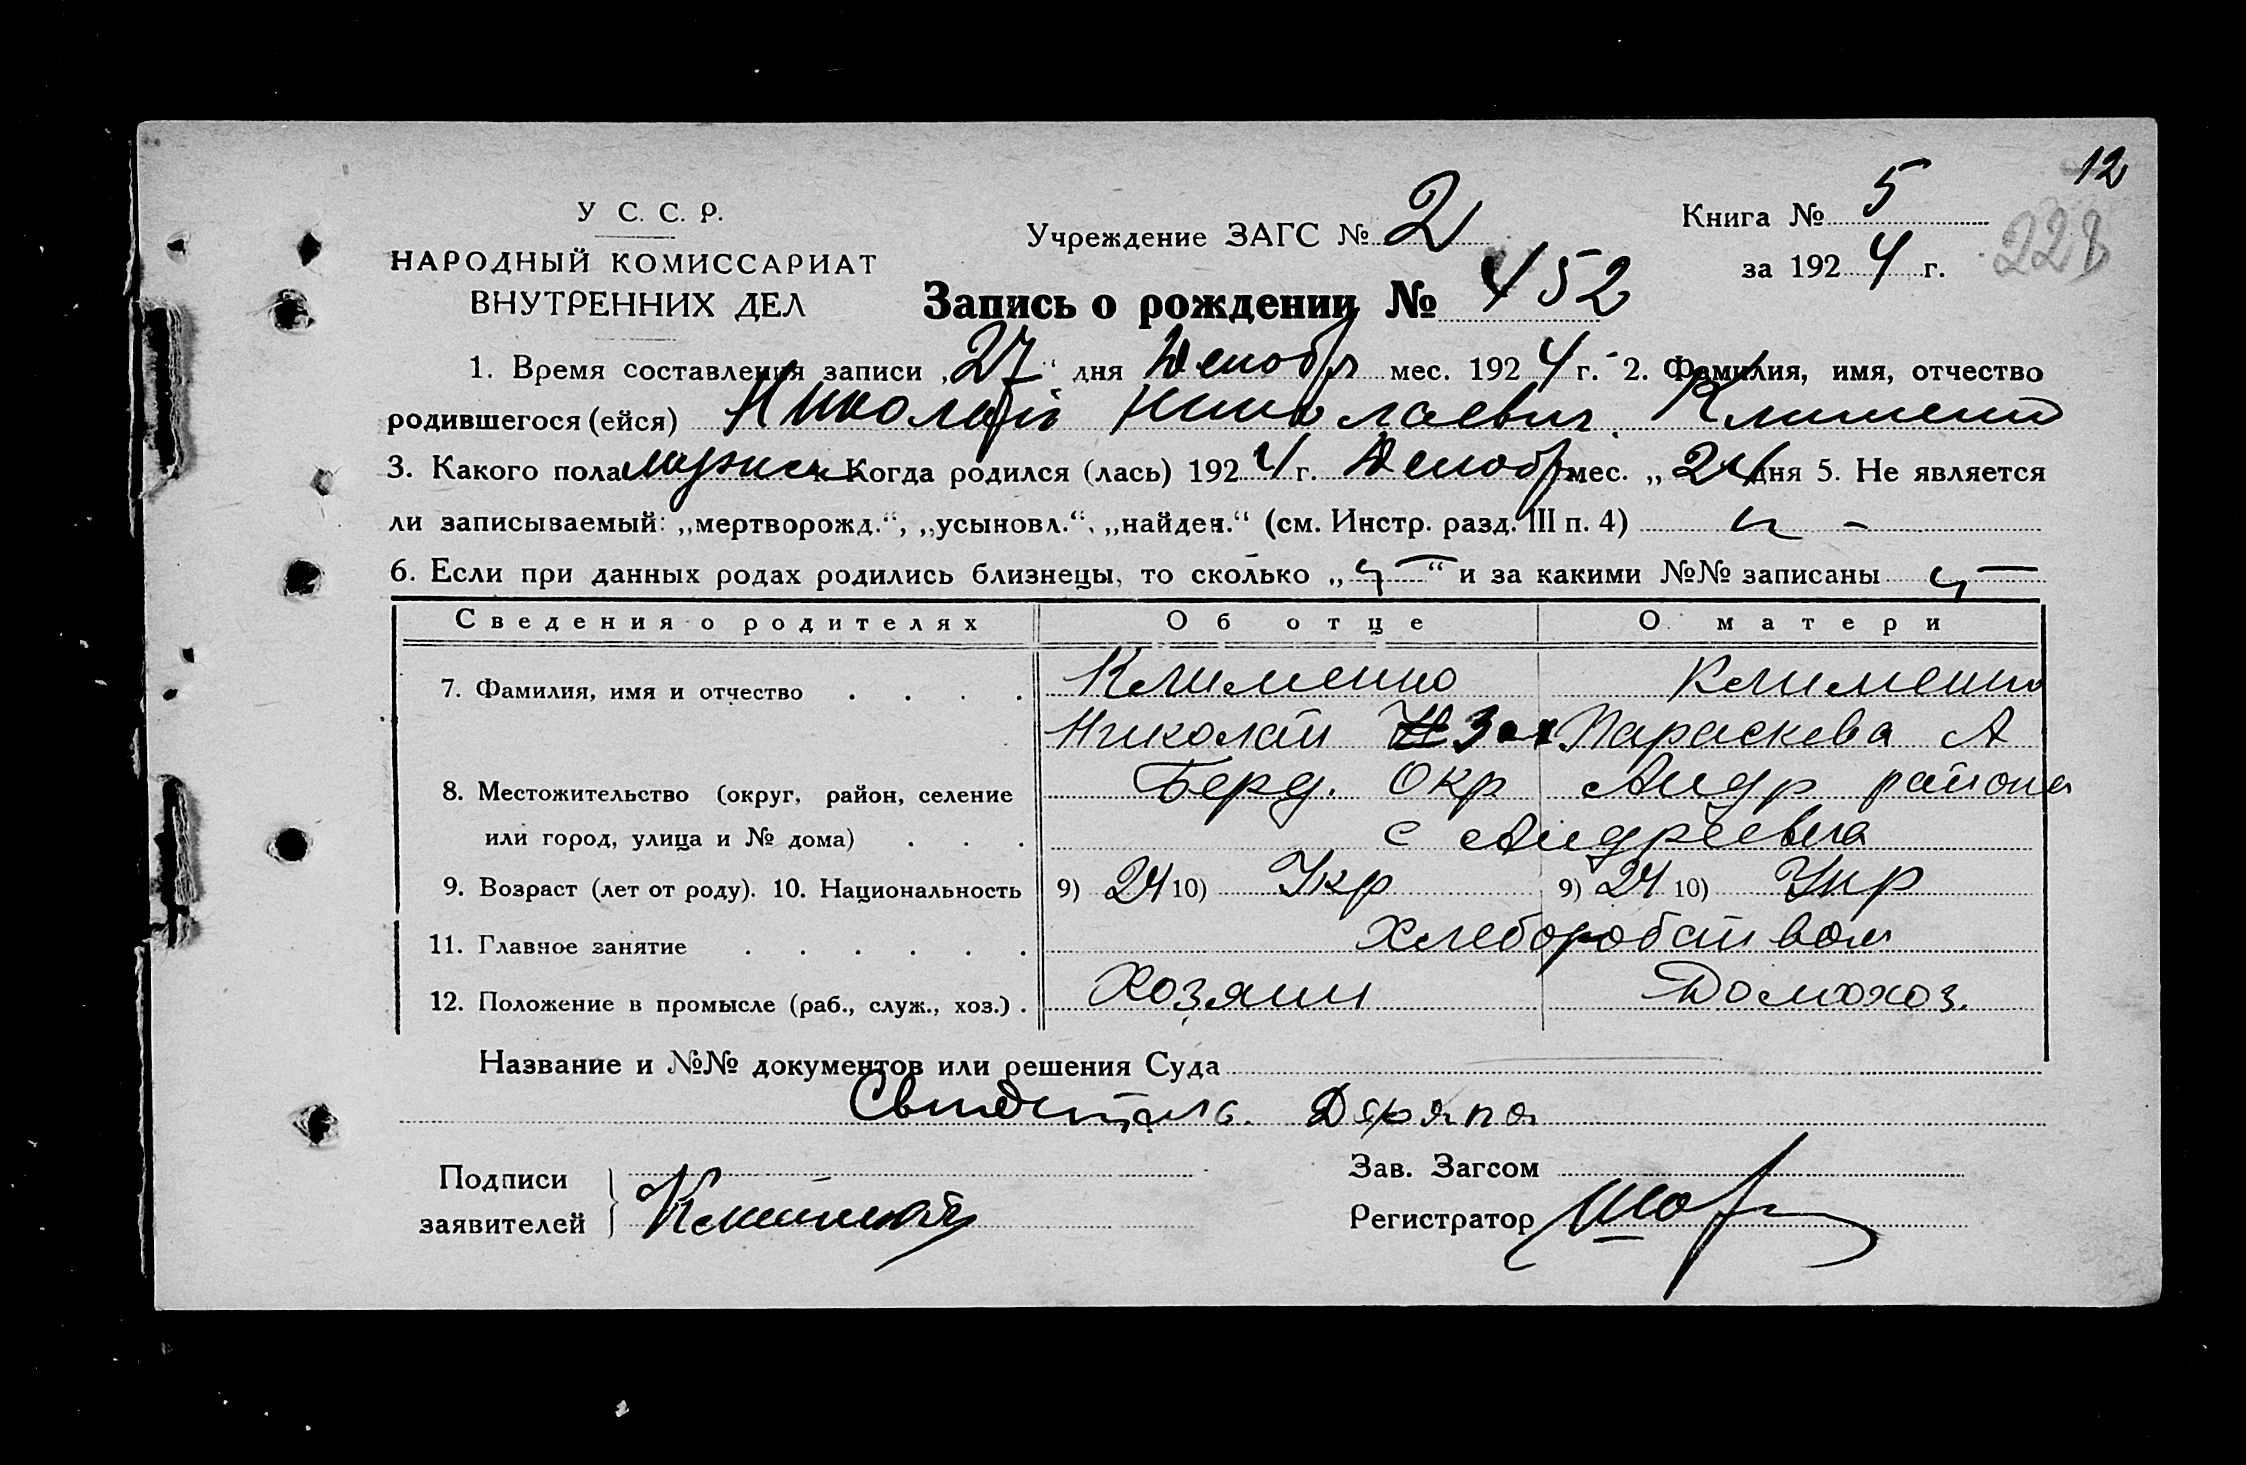 12
У С. С. Р.
Учреждение ЗАГС № 2
Книга № 5
228
НАРОДНЫЙ КОМИССАРИАТ
за 1924 г.
ВНУТРЕННИХ ДЕЛ
Запись о рождении № 452
1. Время составления записи „27“ дня Декабр мес. 1924 г. 2. Фамилия, имя, отчество
родившегося (ейся) Николай Николаевич Клименко
3. Какого пола мужск 4. Когда родился (лась) 1924 г. Декабр мес. „24 дня 5. Не является
ли записываемый: „мертворожд.“, „усыновл.“, „найден.“ (см. Инстр. разд. III п. 4)
6. Если при данных родах родились близнецы, то сколько „ “ и за какими №№ записаны
Сведения о родителях Об отце О матери
7. Фамилия, имя и отчество . . . . Клименко Клименко
Николай Зах Параскева А
8. Местожительство (округ, район, селение Берд. Окр Андр района
или город, улица и № дома) . . . с Андреевка
9. Возраст (лет от роду). 10. Национальность 9) 24 10) Укр 9) 24 10) Укр
11. Главное занятие . . . . . . Хлеборобством
12. Положение в промысле (раб., служ., хоз.) . Хозяин Домохоз.
Название и №№ документов или решения Суда
Свидетель Деряпа
Подписи
заявителей
Зав. Загсом
Регистратор